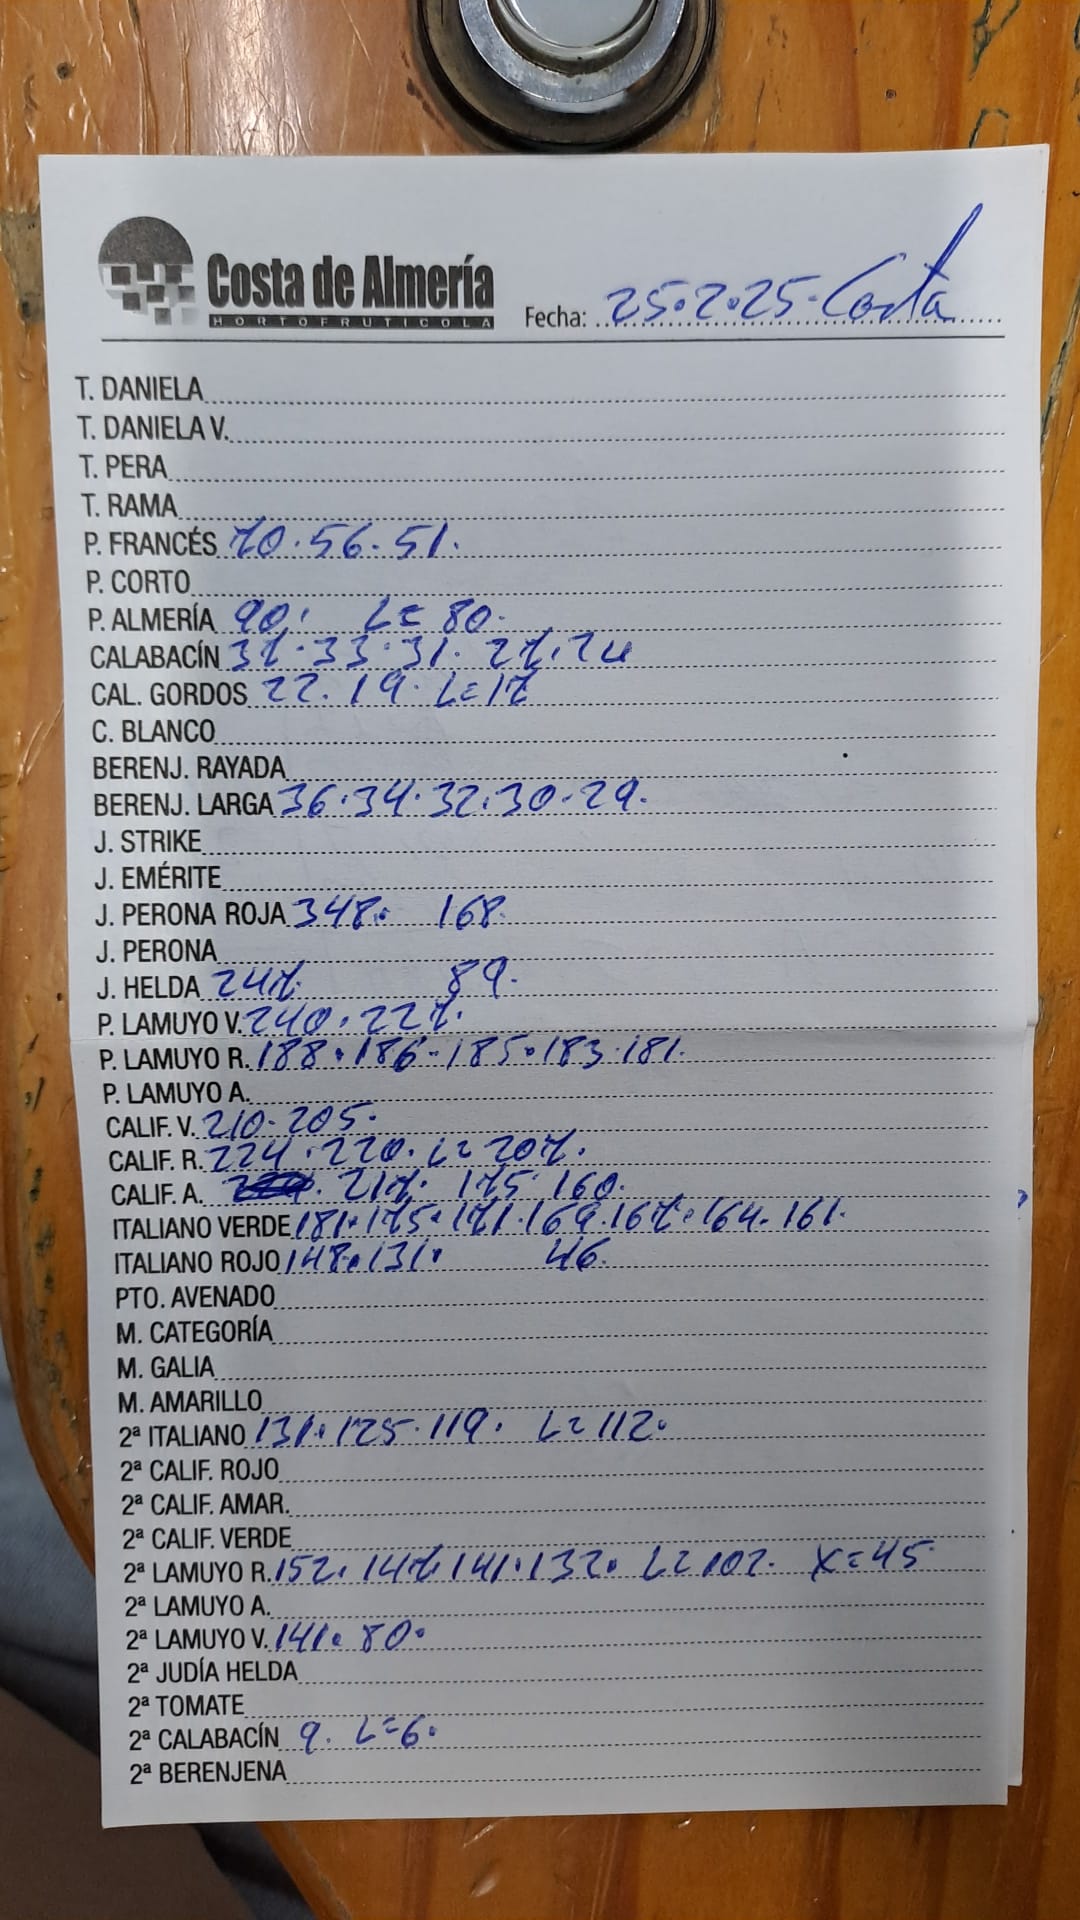 Costa de Almería
HORTOFRUTICOLA
Fecha: 25.2.25. Costa
T. DANIELA
T. DANIELA V.
T. PERA
T. RAMA
P. FRANCÉS 70.56.51.
P. CORTO
P. ALMERÍA 90. L=80.
CALABACÍN 37.33.31. 27.24
CAL. GORDOS 22.19. L=17
C. BLANCO
BERENJ. RAYADA
BERENJ. LARGA 36.34.32.30.29.
J. STRIKE
J. EMÉRITE
J. PERONA ROJA 348. 168.
J. PERONA
J. HELDA 247. 89.
P. LAMUYO V. 240.227.
P. LAMUYO R. 188.186-185.183.181.
P. LAMUYO A.
CALIF. V. 210.205.
CALIF. R. 224.220. L=207.
CALIF. A. 217. 175. 160.
ITALIANO VERDE 181.175.171.169.167.164.161.
ITALIANO ROJO 148.131. 46.
PTO. AVENADO
M. CATEGORÍA
M. GALIA
M. AMARILLO
2ª ITALIANO 131.125.119. L=112.
2ª CALIF. ROJO
2ª CALIF. AMAR.
2ª CALIF. VERDE
2ª LAMUYO R. 152.147.141.132. L=102. X=45
2ª LAMUYO A.
2ª LAMUYO V. 141.80.
2ª JUDÍA HELDA
2ª TOMATE
2ª CALABACÍN 9. L=6.
2ª BERENJENA